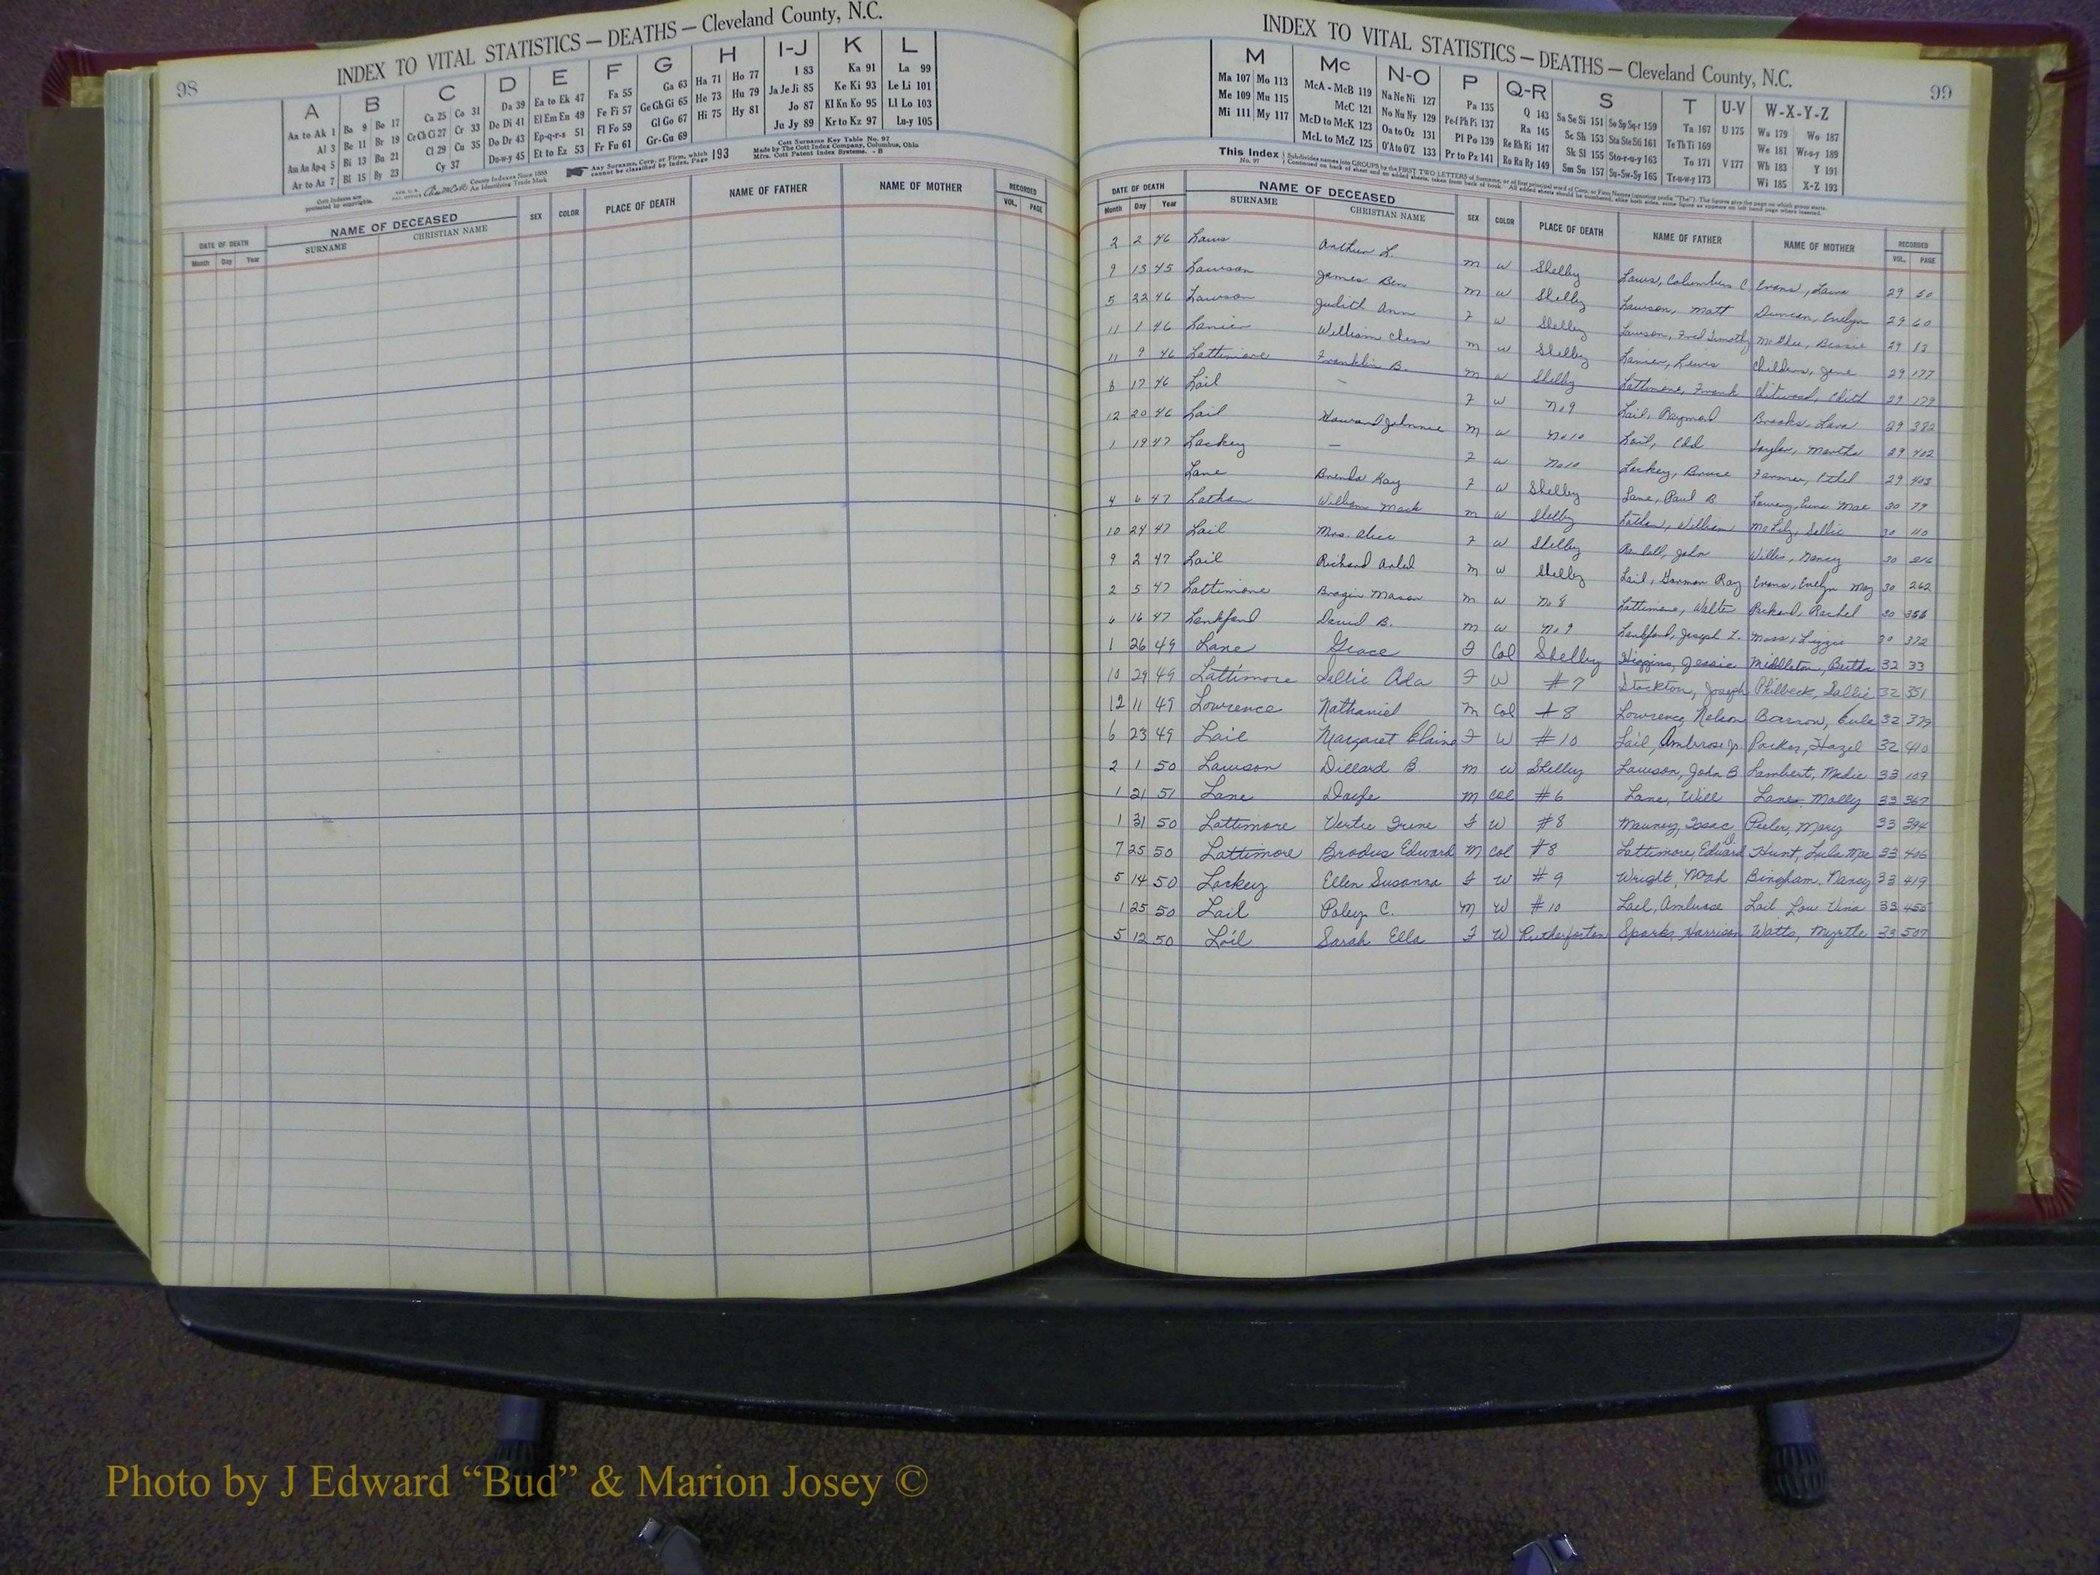 98
INDEX TO VITAL STATISTICS — DEATHS — Cleveland County, N.C.
A B C D E F G H I-J K L
Aa to Ak 1 Ba 9 Bo 17 Ca 25 Co 31 Da 39 Ea to Ek 47 Fa 55 Ga 63 Ha 71 Ho 77 I 83 Ka 91 La 99
Al 3 Be 11 Br 19 Ce Ch Ci 27 Cr 33 De Di 41 El Em En 49 Fe Fi 57 Ge Gh Gi 65 He 73 Hu 79 Ja Je Ji 85 Ke Ki 93 Le Li 101
Am An Ap-q 5 Bi 13 Bu 21 Cl 29 Cu 35 Do Dr 43 Ep-q-r-s 51 Fl Fo 59 Gl Go 67 Hi 75 Hy 81 Jo 87 Kl Kn Ko 95 Ll Lo 103
Ar to Az 7 Bl 15 By 23 Cy 37 Du-w-y 45 Et to Ez 53 Fr Fu 61 Gr-Gu 69 Ju Jy 89 Kr to Kz 97 Lu-y 105
Cott Indexes are protected by copyrights.
County Indexes Since 1888
An Identifying Trade Mark
Any Surname, Corp. or Firm, which cannot be classified by Index, Page 193
Cott Surname Key Table No. 97
Made by The Cott Index Company, Columbus, Ohio
Mfrs. Cott Patent Index Systems. - B
DATE OF DEATH NAME OF DECEASED SEX COLOR PLACE OF DEATH NAME OF FATHER NAME OF MOTHER RECORDED
Month Day Year SURNAME CHRISTIAN NAME VOL. PAGE
INDEX TO VITAL STATISTICS — DEATHS — Cleveland County, N.C.
99
M Mc N-O P Q-R S T U-V W-X-Y-Z
Ma 107 Mo 113 McA - McB 119 Na Ne Ni 127 Pa 135 Q 143 Sa Se Si 151 So Sp Sq-r 159 Ta 167 U 175 Wa 179 Wo 187
Me 109 Mu 115 McC 121 No Nu Ny 129 Pe-f Ph Pi 137 Ra 145 Sc Sh 153 Sta Ste Sti 161 Te Th Ti 169 We 181 Wr-u-y 189
Mi 111 My 117 McD to McK 123 Oa to Oz 131 Pl Po 139 Re Rh Ri 147 Sk Sl 155 Sto-r-u-y 163 To 171 V 177 Wh 183 Y 191
McL to McZ 125 O'A to O'Z 133 Pr to Pz 141 Ro Ru Ry 149 Sm Sn 157 Su-Sw-Sy 165 Tr-u-w-y 173 Wi 185 X-Z 193
This Index No. 97 Subdivides names into GROUPS by the FIRST TWO LETTERS of Surname, or of first principal word of Corp. or Firm Names (ignoring prefix "The"). The figures give the page on which group starts.
Continued on back of sheet and on added sheets, taken from back of book. All added sheets should be numbered, alike both sides, same figure as appears on left hand page where inserted.
DATE OF DEATH NAME OF DECEASED SEX COLOR PLACE OF DEATH NAME OF FATHER NAME OF MOTHER RECORDED
Month Day Year SURNAME CHRISTIAN NAME VOL. PAGE
2 2 46 Laws Arthur L. M W Shelby Laws, Columbus C Evans, Laura 29 50
9 13 45 Lawson James Ben M W Shelby Lawson, Matt Duncan, Evelyn 29 60
5 22 46 Lawson Judith Ann F W Shelby Lawson, Fred Timothy McGhee, Bessie 29 83
11 1 46 Lanier William Chess M W Shelby Lanier, Lewis Childers, Jane 29 177
11 9 46 Lattimore Franklin B. M W Shelby Lattimore, Frank 29 179
8 17 46 Lail — F W No 9 Lail, Raymond Brooks, Lara 29 382
12 20 46 Lail Howard Johnnie M W No 10 Lail, Edd Taylor, Martha 29 402
1 19 47 Lackey — F W No 10 Lackey, Bruce Farmer, Ethel 29 403
Lane Brenda Kay F W Shelby Lane, Paul B Lowery, Euna Mae 30 79
4 6 47 Lathan William Mack M W Shelby Lathan, William Sallie 30 110
10 24 47 Lail Mrs. Alice F W Shelby Randall, John Willis, Nancy 30 216
9 2 47 Lail Richard M W Shelby Lail, Harmon Ray Evans, Evelyn May 30 262
2 5 47 Lattimore Mason M W No 8 Lattimore, Walter Packard, Rachel 30 356
6 16 47 Lankford David B. M W No 9 Lankford, Joseph L. Moss, Lizzie 30 372
1 26 49 Lane Grace F Col Shelby Higgins, Jessie Middleton, Bertha 32 33
10 29 49 Lattimore Sallie Ada F W #7 Stockton, Joseph Philbeck, Sallie 32 351
12 11 49 Lowrence Nathaniel M Col #8 Lowrence, Nelson Barron, Eula 32 379
6 23 49 Lail Margaret Elaine F W #10 Lail, Ambrose Jr. Parker, Hazel 32 410
2 1 50 Lawson Dillard B. M W Shelby Lawson, John B Lambert, Medie 33 109
1 21 51 Lane M Col #6 Lane, Will Lane, Molly 33 367
1 31 50 Lattimore Vertie Irene F W #8 Mauney, Isaac Peeler, Mary 33 394
7 25 50 Lattimore Brodus Edward M Col #8 Lattimore, Edward D. Hunt, Lula Mae 33 406
5 14 50 Lackey Ellen Susanna F W #9 Wright, Noah Bingham, Nancy 33 419
1 25 50 Lail Poley C. M W #10 Lail, Ambrose Lail Lou Vina 33 455
5 12 50 Lail Sarah Ella F W Rutherforton Sparks, Harrison Watts, Myrtle 33 507
Photo by J Edward “Bud” & Marion Josey ©